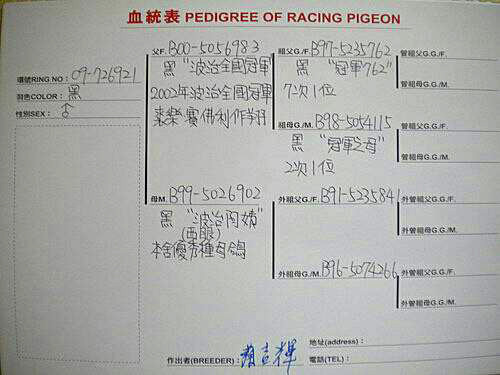 血統表 PEDIGREE OF RACING PIGEON
環號RING.NO： 09-726921
羽色COLOR： 黑
性別SEX： ♂
父F. B00-5056983
黑 "波治全國冠軍"
2002年波治全國冠軍
賽佛利作翔
母M. B99-5026902
黑 "波治
(西眼)
本舍優秀種母鴿
祖父G./F. B97-5235762
黑 "冠軍762"
7次1位
祖母G./M. B98-5054115
黑 "冠軍之母"
2次1位
外祖父G./F. B91-5235841
外祖母G./M. B96-5074266
曾祖父G.G./F.
曾祖母G.G./M.
曾祖父G.G./F.
曾祖母G.G./M.
外曾祖父G.G./F.
外曾祖母G.G./M.
外曾祖父G.G./F.
外曾祖母G.G./M.
作出者(BREEDER)：
地址(address)：
電話(TEL)：